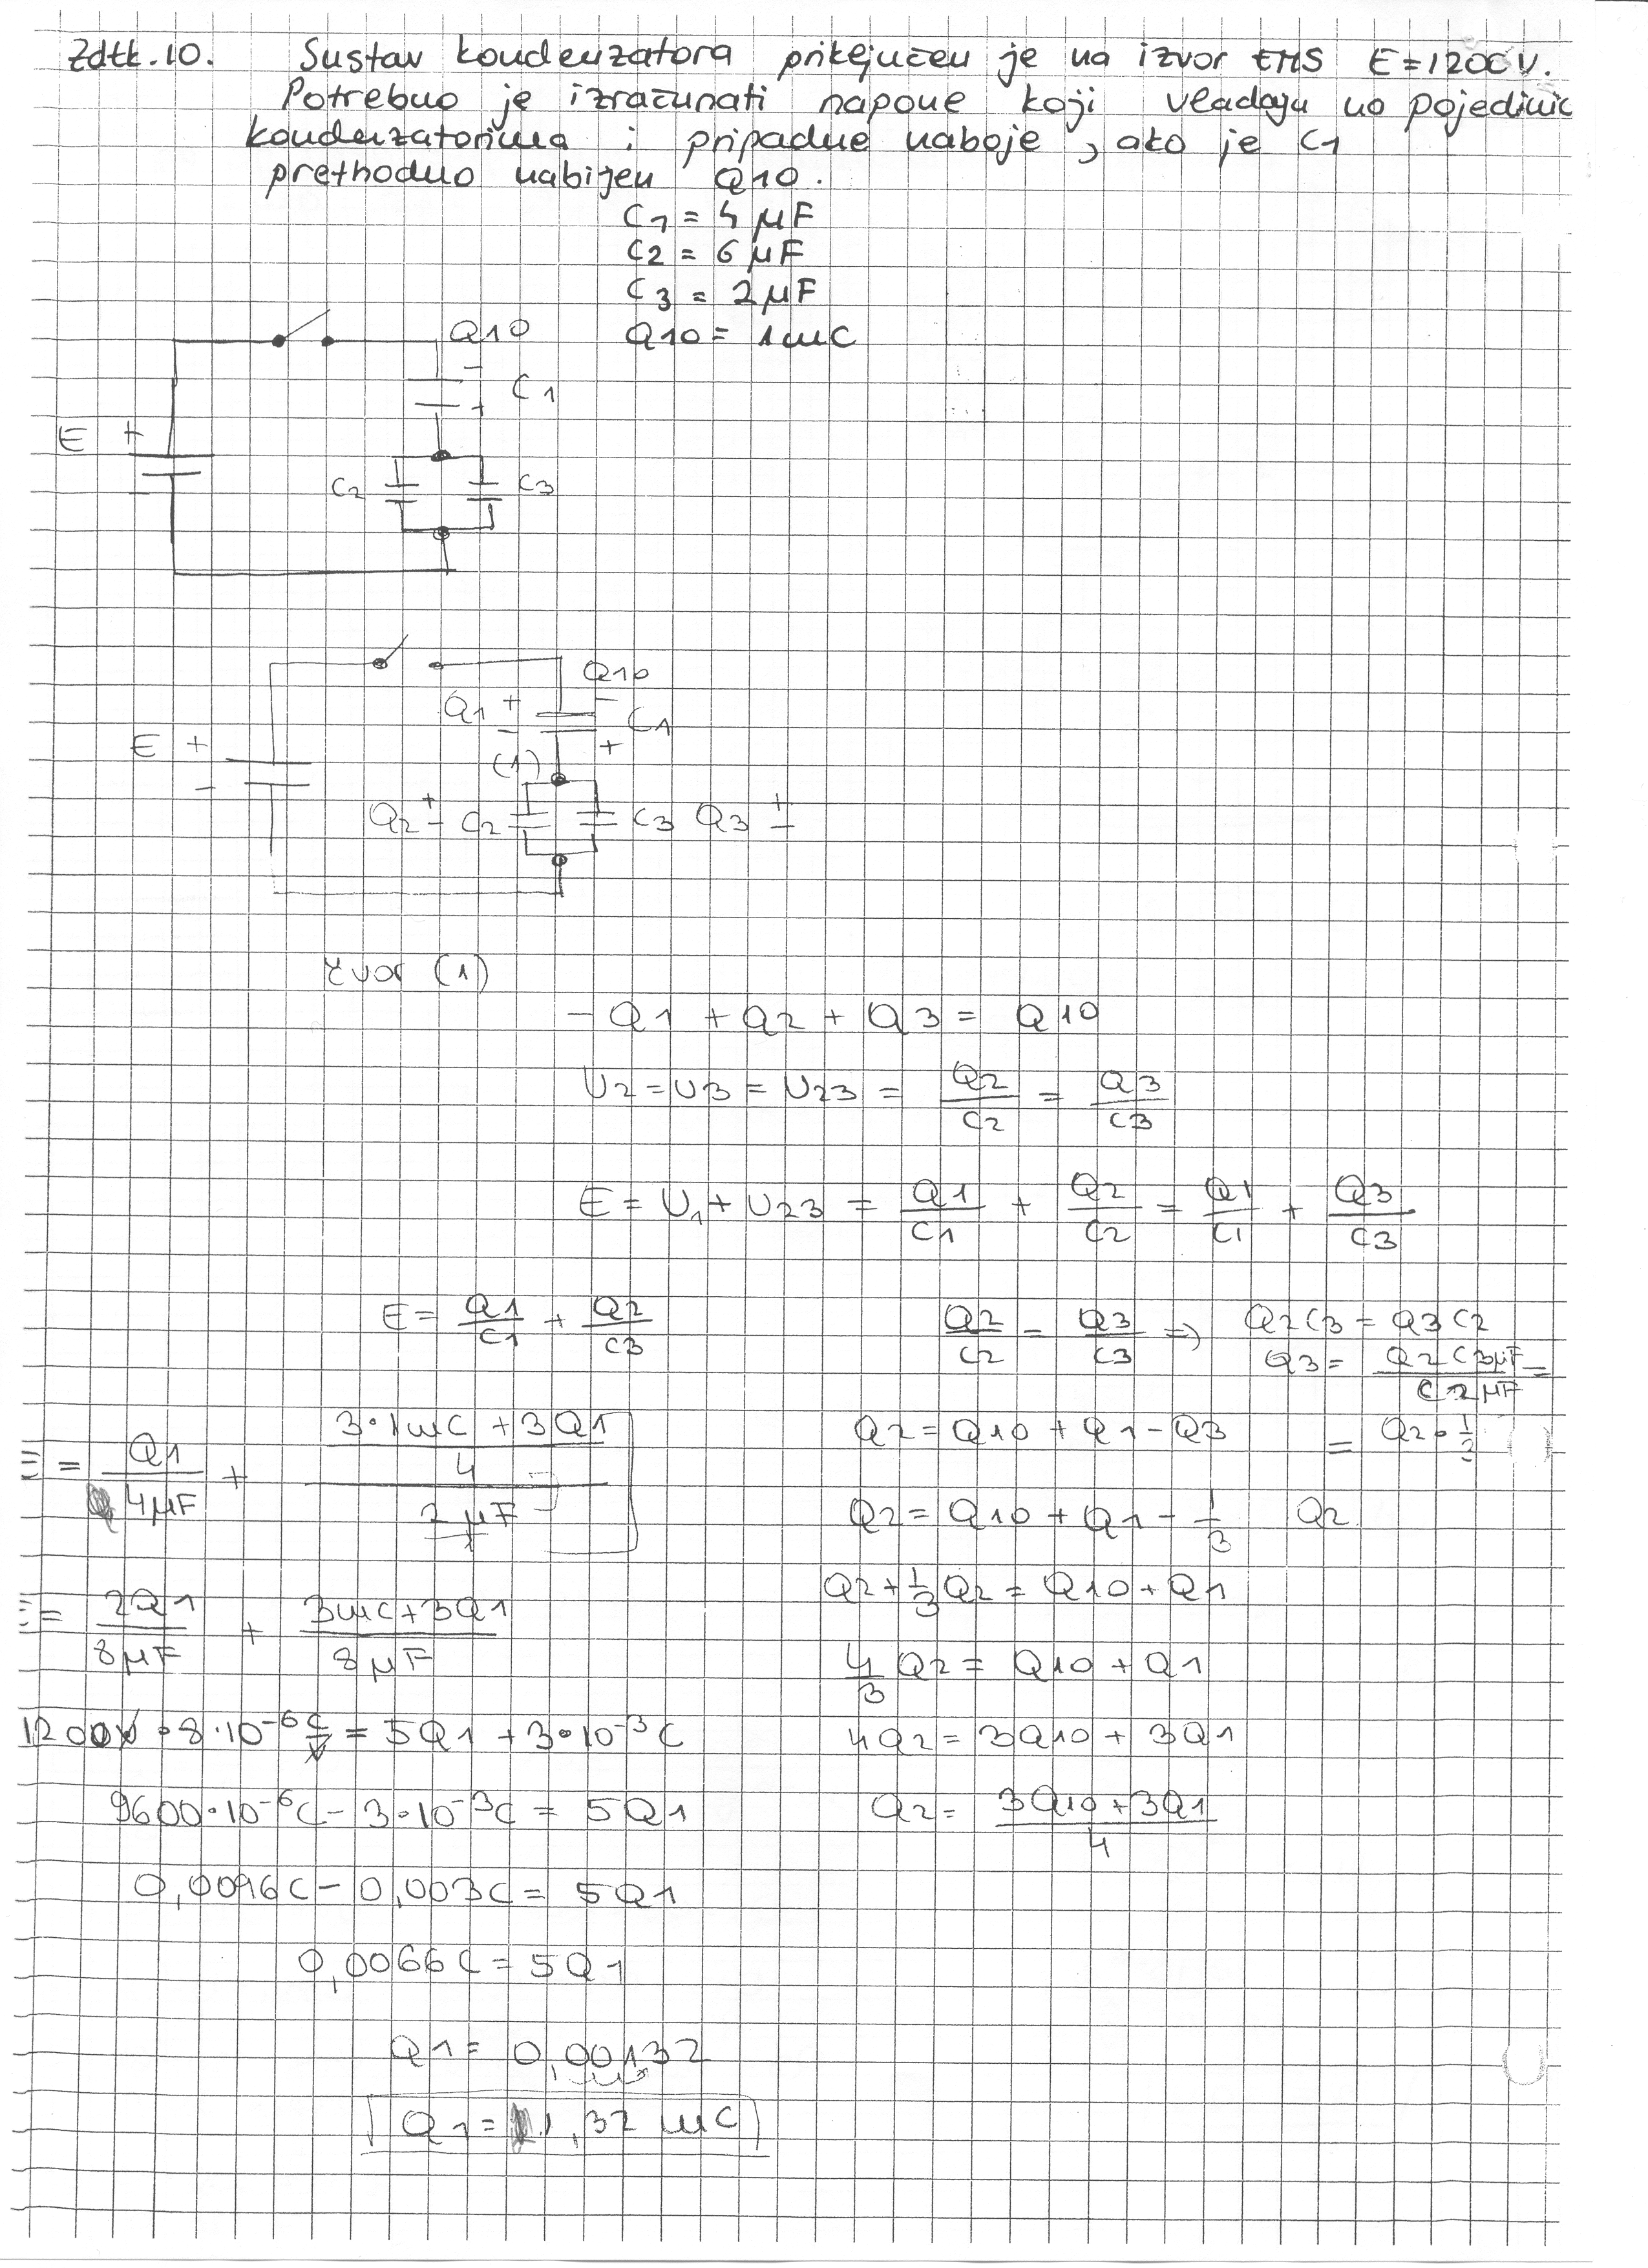 Zdtk.10. Sustav kondenzatora priključen je na izvor EMS E=1200V.
Potrebno je izračunati napone koji vladaju na pojedinic
kondenzatorima i pripadne naboje, ako je C1
prethodno nabijen Q10.
C1 = 4 μF
C2 = 6 μF
C3 = 2 μF
Q10 = 1mC
Q10
- C1
+
E +
-
C2 C3
Q10
Q1 + - C1
- +
E +
-
(1)
Q2 + - C2 C3 Q3 + -
čvor (1)
- Q1 + Q2 + Q3 = Q10
U2 = U3 = U23 = Q2/C2 = Q3/C3
E = U1 + U23 = Q1/C1 + Q2/C2 = Q1/C1 + Q3/C3
E = Q1/C1 + Q2/C3
Q2/C2 = Q3/C3 => Q2C3 = Q3C2
Q3 = Q2C3μF/C2μF =
= Q2·1/3
E = Q1/4μF + (3·1mC + 3Q1)/4/2μF
Q2 = Q10 + Q1 - Q3
Q2 = Q10 + Q1 - 1/3 Q2
E = 2Q1/8μF + 3mC+3Q1/8μF
Q2 + 1/3 Q2 = Q10 + Q1
4/3 Q2 = Q10 + Q1
1200V·8·10^-6 C/V = 5Q1 + 3·10^-3 C
4Q2 = 3Q10 + 3Q1
9600·10^-6 C - 3·10^-3 C = 5Q1
Q2 = 3Q10+3Q1/4
0,0096C - 0,003C = 5Q1
0,0066C = 5Q1
Q1 = 0,00132
Q1 = 1,32 mC